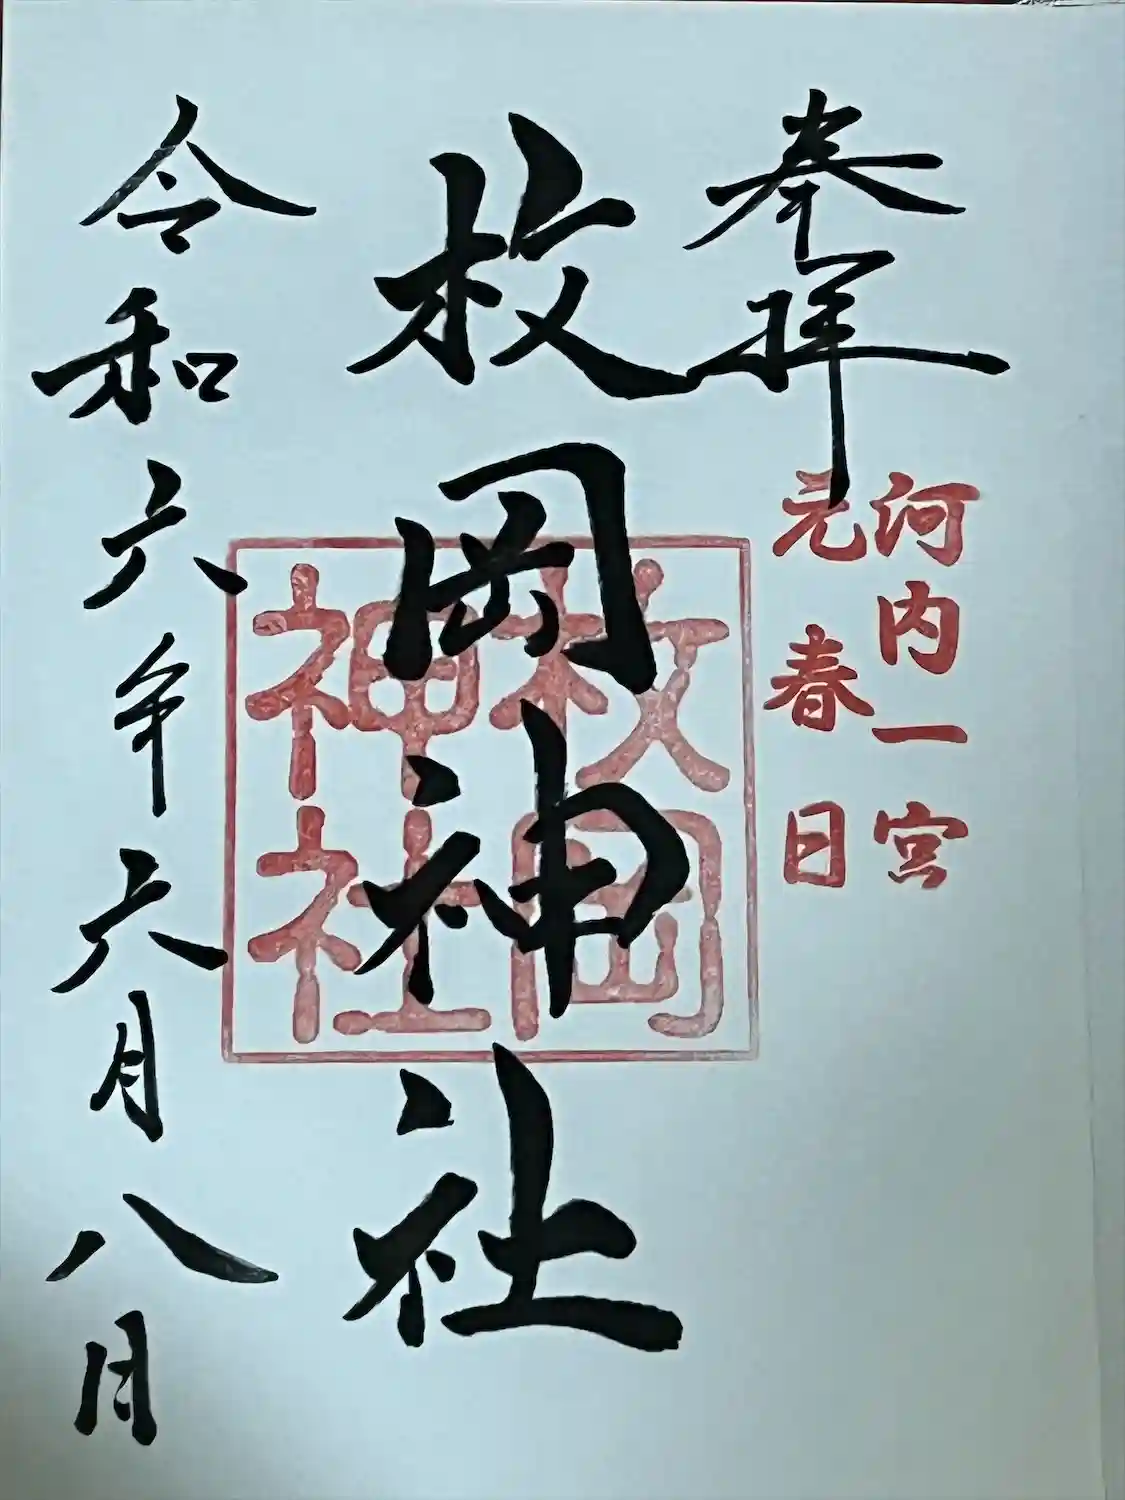 奉拝
河内一宮
元春日
枚岡神社
枚岡
神社
令和六年六月八日